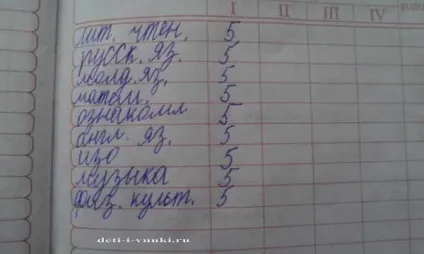 I II III IV
лит. чтен. 5
русск. яз. 5
молд. яз. 5
матем. 5
ознакомл. 5
англ. яз. 5
изо 5
музыка 5
физ. культ. 5
deti-i-vnuki.ru